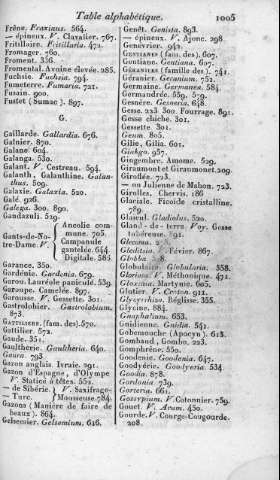 Table alphabétique. 1005
Frêne. Fraxinus. 564.
— épineux. V. Clavalier. 767.
Fritillaire. Fritillaria. 471.
Fromager. 760.
Froment. 336.
Fromental. Avoine élevée. 285.
Fuchsie. Fuchsia. 794.
Fumeterre. Fumaria. 721.
Fusain. 900.
Fustet (Sumac). 897.
G.
Gaillarde. Gallardia. 676.
Galnier. 850.
Galane. 604.
Galanga. 530.
Galant. V. Cestreau. 594.
Galanth, Galanthine. Galanthus. 509.
Galaxie. Galaxia. 520.
Galé. 926.
Galega. 300. 890.
Gandazuli. 529.
Gants-de-Notre-Dame. V.
Ancolie commune. 705.
Campanule gantelée. 644
Digitale. 585
Garance. 350.
Gardénie. Gardenia. 679.
Garou. Lauréole paniculé. 539.
Garoupe. Camelée. 897.
Garousse. V. Gessette. 301.
Gastrolobier. Gastrolobium.
873.
Gattilier. 571.
Gaude. 351.
Gaulthérie. Gaultheria. 640.
Gaura. 793
Gazon anglais. Ivraie. 291.
Gazon d'Espagne, d'Olympe
V. Staticé à têtes. 552.
— de Sibérie.
— Turc.
V. Saxifrage-Mousseuse. 784.
Gazons (Manière de faire de
beaux). 864.
Gelsemier. Gelsemium. 616.
Genêt. Genista. 893.
— épineux. V. Ajonc. 298.
Genévrier. 942.
Gentianes (fam. des). 607.
Gentiane. Gentiana. 607.
Géraniées (famille des). 741.
Géranier. Geranium. 752.
Germaine. Germanea. 584.
Germandrée. 559. 579.
Gesnère. Gesneria. 648.
Gesse. 223. 300. Fourrage. 891.
Gesse chiche. 301.
Gessette. 301.
Geum. 805.
Gilie. Gilia. 601.
Ginkgo. 957.
Gingembre. Amome. 529.
Giraumont et Giraumonet. 209
Giroflée. 723.
— ou Julienne de Mahon. 723.
Girolles. Chervis. 186
Glaciale. Ficoïde cristalline.
789.
Glaïeul. Gladiolus. 520.
Gland-de-terre. Voy. Gesse
tubéreuse. 891.
Gleditzia. V. Févier. 867.
Globba.
Globulaire. Globularia. 558.
Gloriosa. V. Méthonique. 471.
Gloxinia. Martynie. 605.
Gluttier. V. Croton. 911.
Glycyrrhiza. Réglisse. 355.
Glycine. 884.
Gnaphalium. 653.
Gnidienne. Gnidia. 541.
Gobemouche (Apocyn). 613.
Gombaud, Gombo. 223.
Gomphrène. 550.
Goodenie. Goodenia. 647.
Goodyérie. Goodyeria. 534
Goodia. 878.
Gordonia. 739.
Gorteria. 661.
Gossypium. V. Cotonnier. 759.
Gouet. V. Arum. 450.
Gourde. V. Courge-Cougourde.
208.